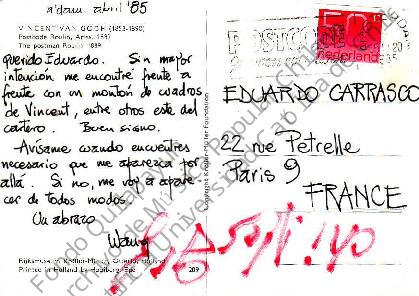 a'dam. abril '85
VINCENT VAN GOGH (1853-1890)
Postcode Roulin, Arles, 1889
The postman Roulin 1889
Querido Eduardo. Sin mayor
intención me encontré frente a
frente con un montón de cuadros
de Vincent, entre otros este del
cartero. Buen signo.
Avísame cuando encuentres
necesario que me aparezca por
allá. Si no, me voy a apare-
cer de todos modos.
Un abrazo
Rijksmuseum Kröller-Müller, Otterlo, Holland
Printed in Holland by Hooiberg-Epe
209
Copyright Kröller-Müller Foundation
POSTCODE
Nederland
EDUARDO CARRASCO
22 rue Petrelle
Paris 9
FRANCE
Fondo Quilapayún